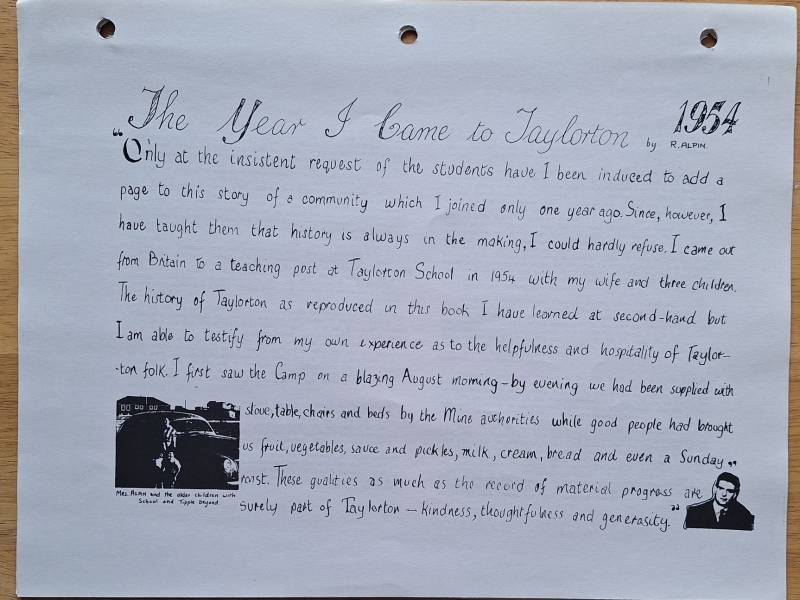 The Year I Came to Taylorton by R. ALPIN. 1954
"Only at the insistent request of the students have I been induced to add a
page to this story of a community which I joined only one year ago. Since, however, I
have taught them that history is always in the making, I could hardly refuse. I came out
from Britain to a teaching post at Taylorton School in 1954 with my wife and three children.
The history of Taylorton as reproduced in this book I have learned at second-hand but
I am able to testify from my own experience as to the helpfulness and hospitality of Taylor-
-ton folk. I first saw the Camp on a blazing August morning - by evening we had been supplied with
stove, table, chairs and beds by the Mine authorities while good people had brought
us fruit, vegetables, sauce and pickles, milk, cream, bread and even a Sunday
roast. These qualities as much as the record of material progress are
surely part of Taylorton - kindness, thoughtfulness and generasity."
Mrs. ALPIN and the older children with
School and Tipple beyond.